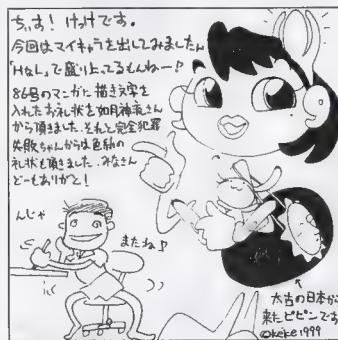 ちぃす！けけです。
今回はマイキャラを出してみましたん
「HなL」で盛り上ってるもんねー♪
86号のマンガに描き文字を
入れたお礼状を如月神流さん
から頂きました。それと完全犯罪
失敗ちゃんからは色紙の
礼状も頂きました。みなさん
どーもありがと！
んじゃ
またね♪
太古の日本から
来たピピンです
©keke1999